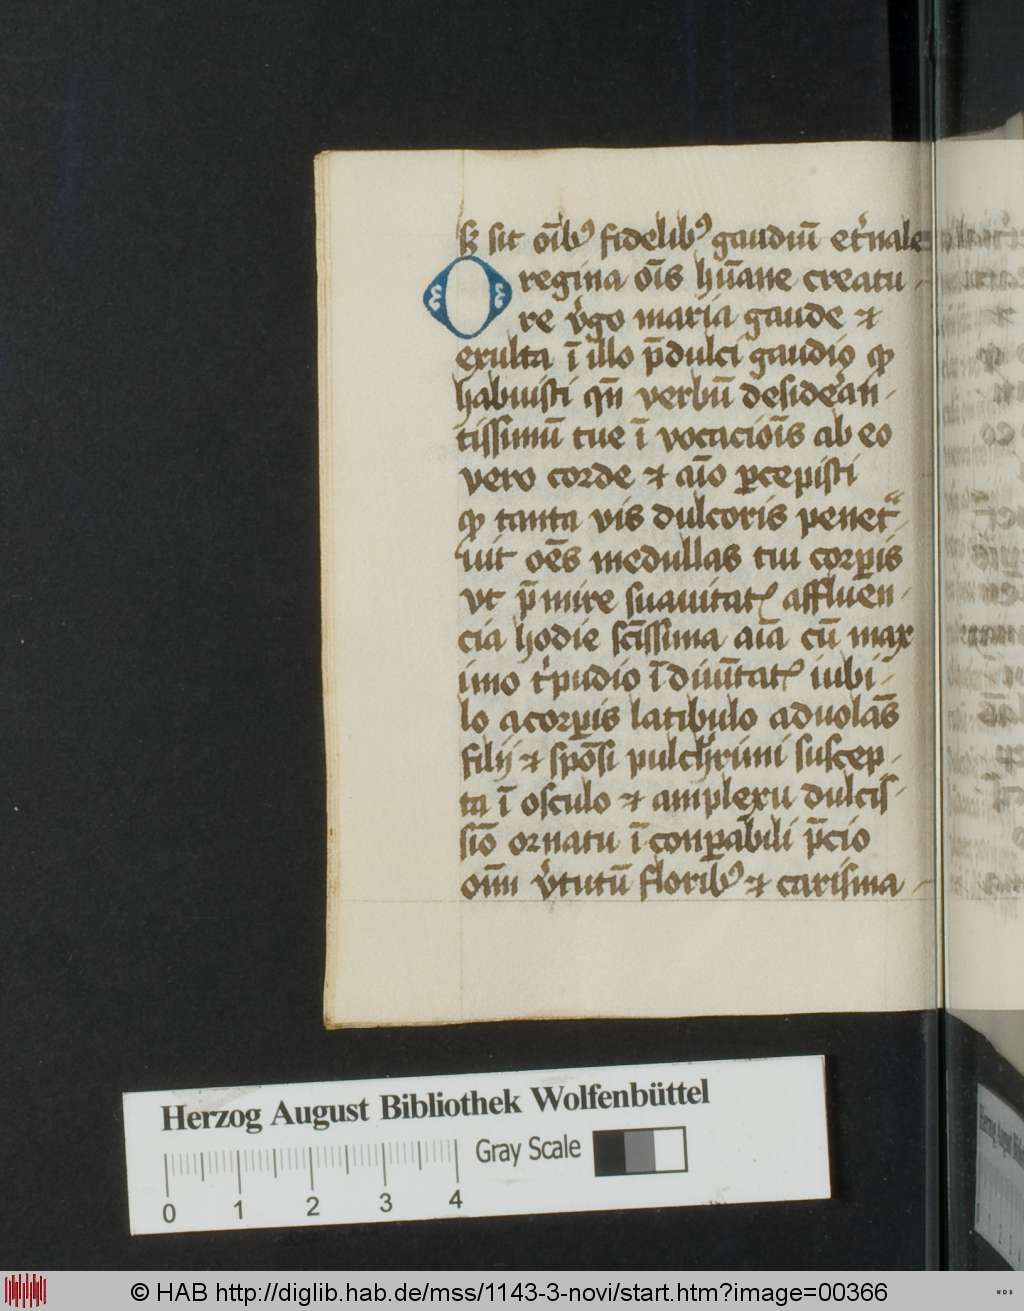 sꝫ sit oı̄bꝰ fidelibꝰ gaudiū et̾nale
O regina oı̄s hūane creatu-
re v̾go maria gaude ⁊
exulta ī illo p̄dulci gaudio ꝙ
habuisti qn̄ verbū desid̾an-
tissimū tue ī vocacioı̄s ab eo
vero corde ⁊ aı̄o ꝑcepisti
ꝙ tanta vis dulcoris penetᷓ-
uit oēs medullas tui corꝑis
vt p̄ mire suauitatꝭ affluen-
cia hodie sc̄issima aı̄a cū max
imo t̾pudio īdiuı̄tatꝭ iubi-
lo a corꝑis latibulo aduolās
filij ⁊ spōsi pulch̾rimi suscep-
ta ī osculo ⁊ amplexu dulcis-
sīo ornatu ī conꝑabili p̄cio
oı̄m v̾tutū floribꝰ ⁊ carisma-
Herzog August Bibliothek Wolfenbüttel
Gray Scale
0 1 2 3 4
© HAB http://diglib.hab.de/mss/1143-3-novi/start.htm?image=00366